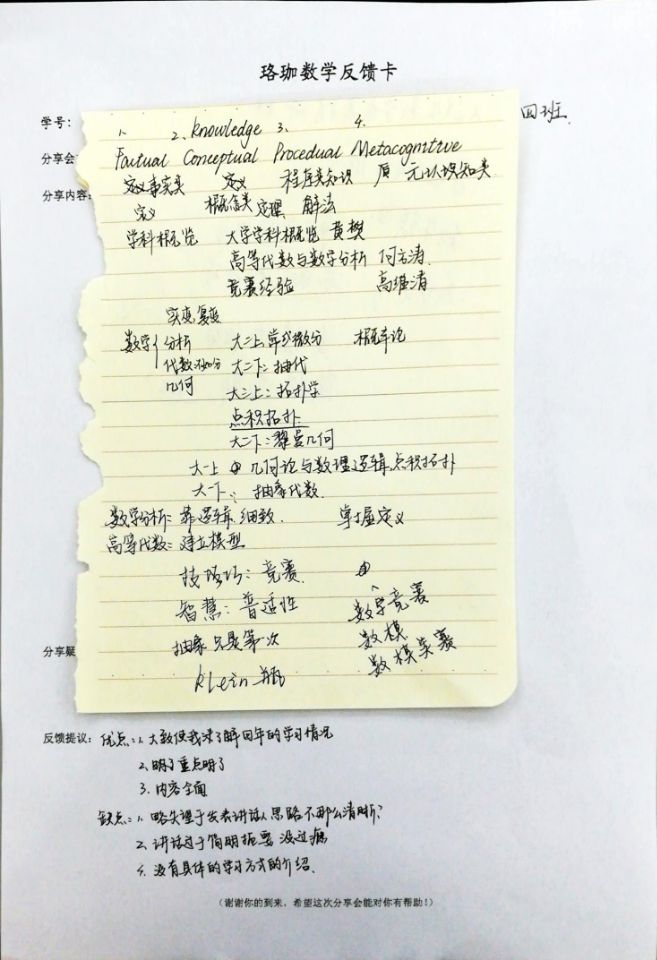 珞珈数学反馈卡
学号： 四班
分享会
分享内容：
1. 2. knowledge 3. 4.
Factual Conceptual Procedual Metacognitive
事实类 定义 程序类知识 元认知类
定义 概念类 定理 解法
学科概览 大学学科概览 黄樊
高等代数与数学分析 何方涛
竞赛经验 高维清
实变复变
数学 分析 大二上 常微分 概率论
代数 大二下：抽代
几何 大三上：拓扑学
点积拓扑
大二下：黎曼几何
大一上 几何论与数理逻辑 点积拓扑
大一下： 抽象代数
数学分析：靠逻辑，细致. 掌握定义
高等代数：建立模型
技巧：竞赛
智慧：普适性 数学竞赛
抽象只是第一次 数模
Klein 瓶 数模美赛
分享疑
反馈提议：优点：1. 大致使我了解四年的学习情况
2. 重点明了
3. 内容全面
缺点：1. 略失望于发表讲话人思路不那么清晰？
2. 讲话过于简明扼要 没过瘾
4. 没有具体的学习方式的介绍.
（谢谢你的到来，希望这次分享会能对你有帮助！）